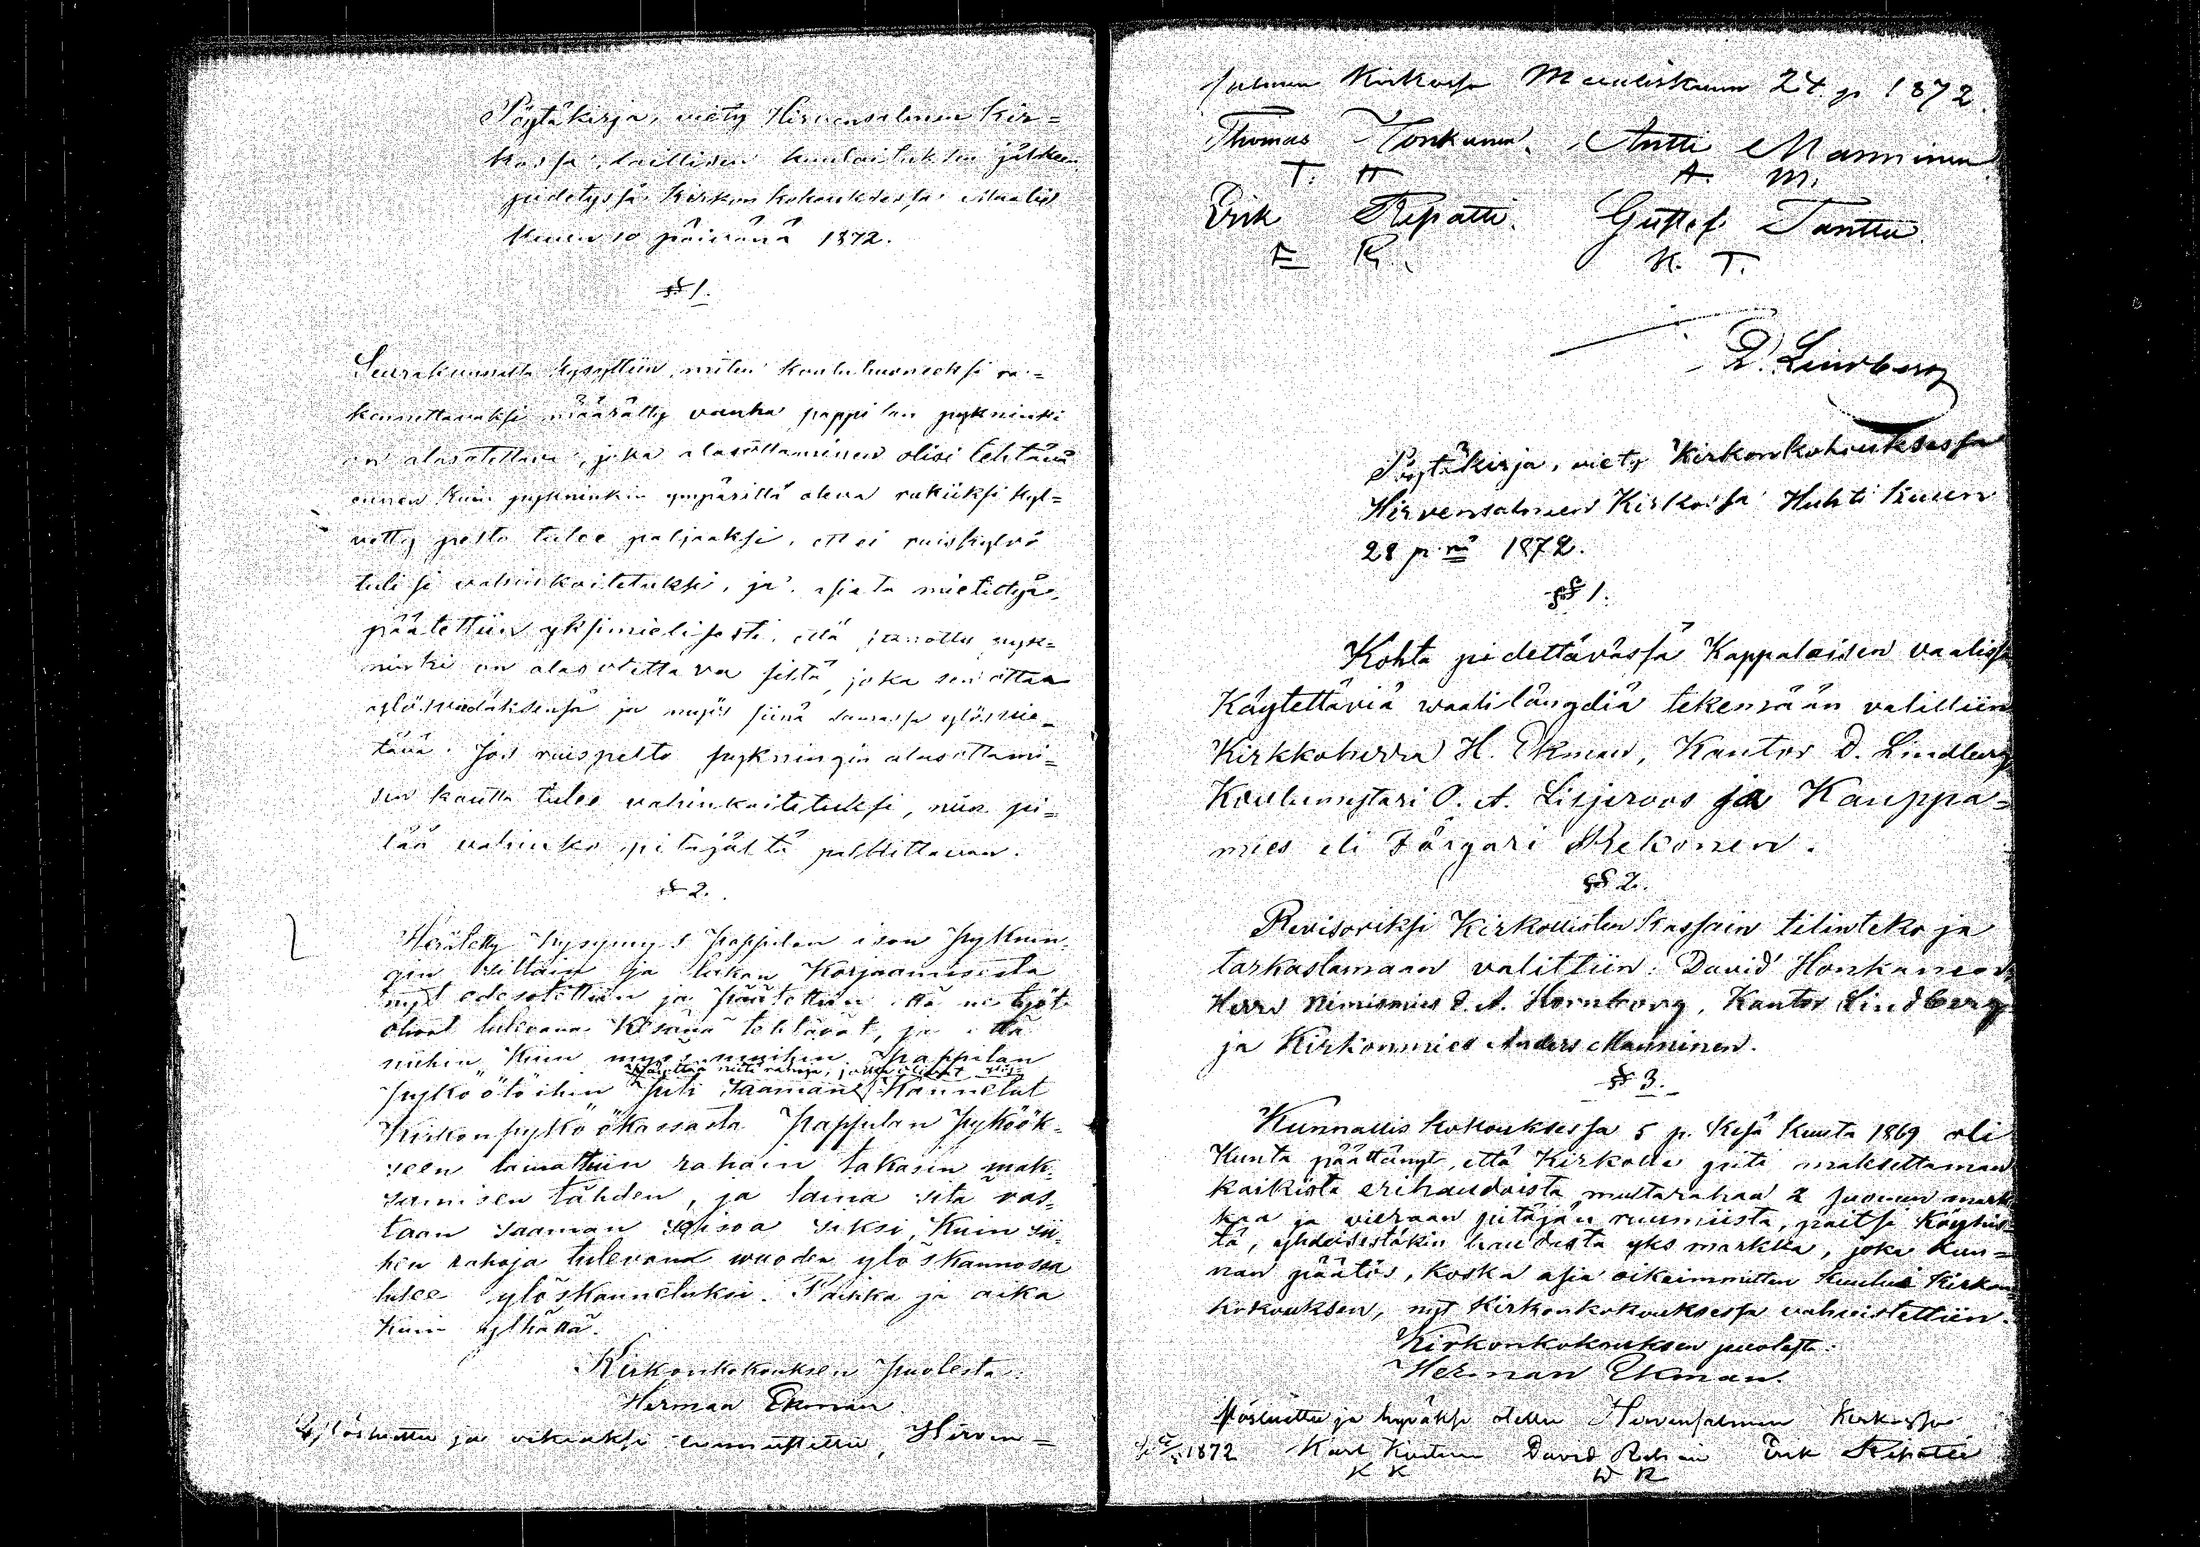 Pöytäkirja, viety Hirvensalmen Kir=
kossa, laillisen kuulutuksen jälkeen
pidetyssä Kirkon kokouksessa Maalis
kuun 10 päivänä 1872.
§ 1.
Seurakunnalta kysyttiin, miten kouluhuoneeksi ra=
kennettavaksi määrätty vanha pappilan pykninki
on alasotettava, joka alasottaminen olisi tehtävä
ennen kuin pykninkin ympärillä oleva rukiiksi kyl=
vetty pelto tulee paljaaksi, ett ei ruiskylvö
tulisi vahinkoitetuksi, ja asiata mietittyä,
päätettiin yksimielisesti, että sanottu pyk=
ninki on alasotettava siltä, joka sen ottaa
ylösviedäksensä ja myös siinä samassa ylösvie=
tävä. Jos ruispelto pykningin alasottami=
sen kautta tulee vahinkoitetuksi, niin pi=
tää vahinko pitäjältä palkittaman.
§ 2.
Herätetty kysymys Pappilan ison pyknin=
gin siltain ja lukan Korjaamisesta
nyt edesotettiin ja päätettiin että ne työt
olivat tulevana Kesänä tehtävät, ja että
niihin Kuin myös muihin Pappilan
pyköötöihin piti saaman Kannetut
Kirkonpyköökassasta Pappilan pyköök=
seen lainattuin rahain takasin mak=
samisen tähden, ja laina sitä vas=
taan saaman seisoa siksi, Kuin sii=
hen rahoja tulevana wuoden ylöskannossa
tulee ylöskannetuksi. Paikka ja aika
Kuin ylhällä.
Kirkonkokouksen puolesta:
Herman Ekman
Ylösluettu ja oikiaksi tunnustettu, Hirven=
salmen Kirkossa Maaliskuun 24 p 1872.
Thomas Honkanen. Antti Manninen
T. H A. M.
Erik Repatti. Gustaf Tanttu.
E R. K. T.
D. Lindberg
Pöytäkirja, viety Kirkonkokouksessa
Hirvensalmen Kirkossa Huhti kuun
28 p:nä 1872.
§ 1.
Kohta pidettävässä Kappalaisen vaalissa
Käytettäviä waalilängdiä tekemään valittiin
Kirkkoherra H. Ekman, Kantor D. Lindberg
Koulumestari O. A. Liljeroos ja Kauppa=
mies eli Förgari Rekonen.
§ 2.
Revisoriksi Kirkollisten Kassain tilinteko ja
tarkastamaan valittiin: David Honkanen,
Herra Nimismies O. A. Hornborg, Kantor Lindberg
ja Kirkonmies Anders Manninen.
§ 3.
Kunnallis kokouksessa 5 p. Kesä kuuta 1869 oli
Kunta päättänyt, että Kirkolle piti maksettaman
kaikista erihaudoista multarahaa 2 Suomen mark
kaa ja vieraan pitäjän ruumiista, paitsi Köyhis=
tä, yhdeisestäkin haudasta yks markka, joka Kun=
nan päätös, koska asia oikeimmitten kuului Kirkon
kokouksen, nyt Kirkonkokouksessa vahvistettiin.
Kirkonkokouksen puolesta:
Herman Ekman.
Ylösluettu ja hyväksi otettu Hirvensalmen Kirkossa
1872 Karl David Erik Repatti
K K D R